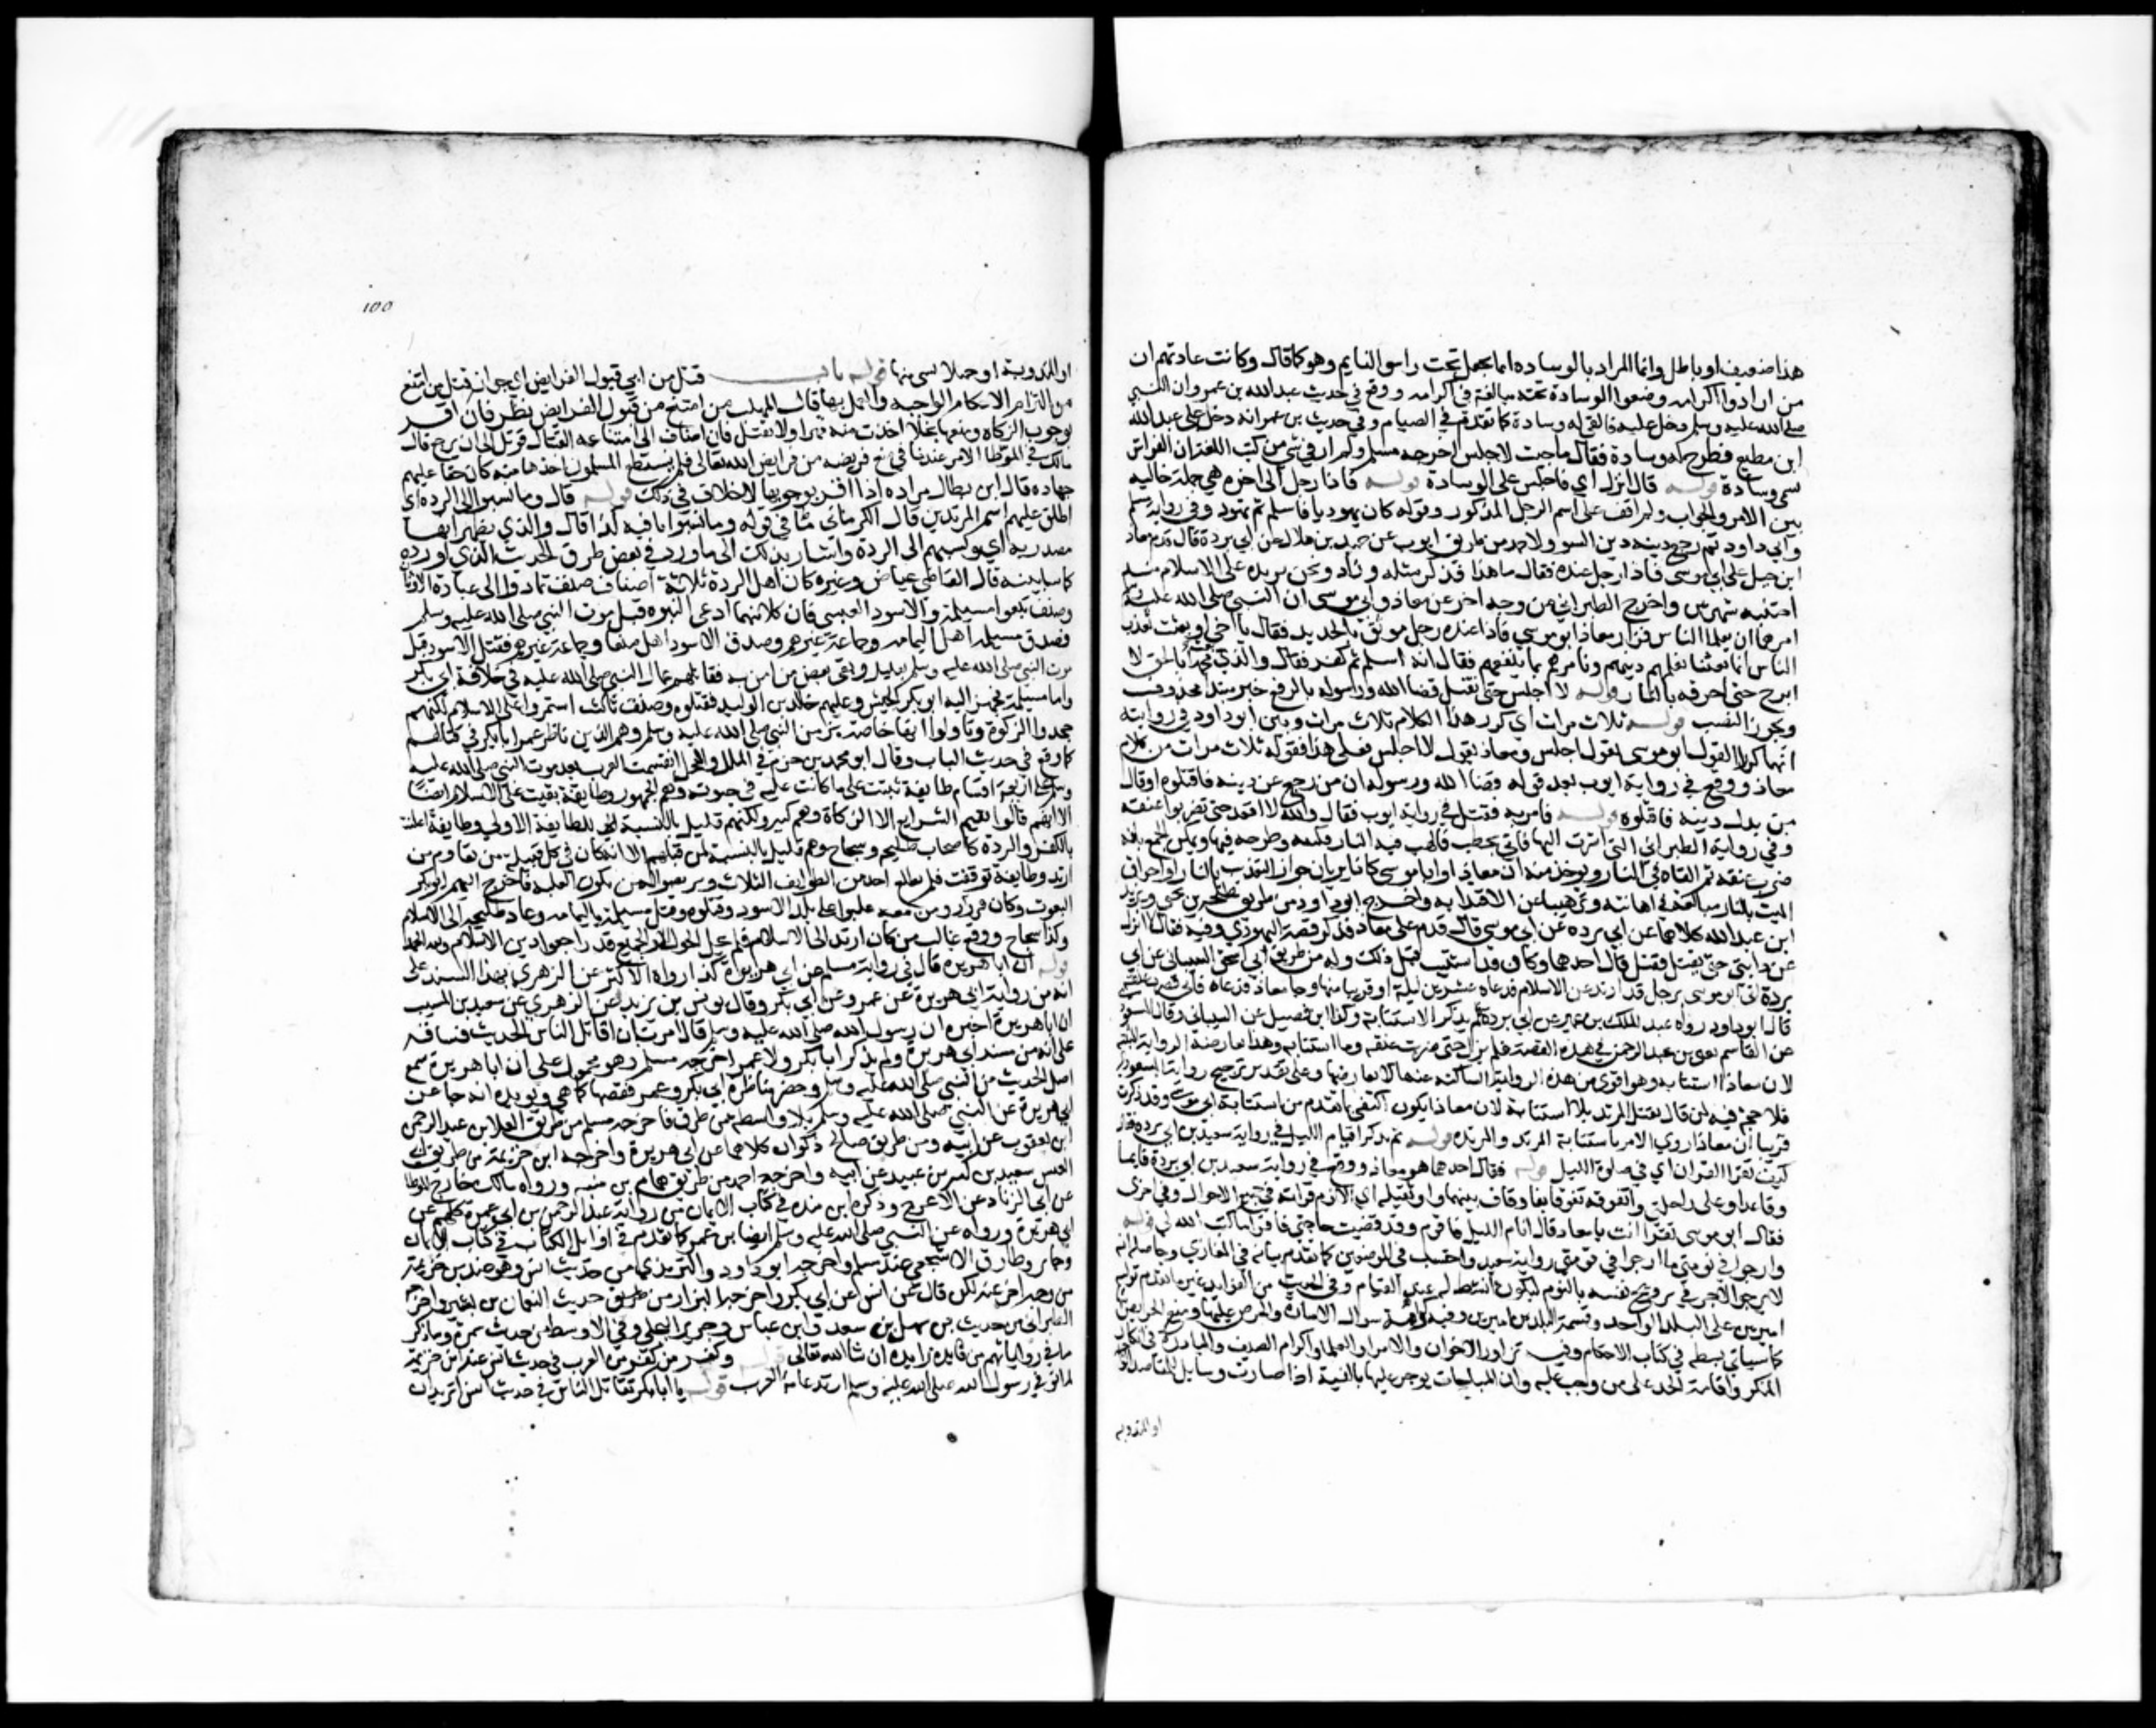 هذا ضعيف او باطل وانما المراد بالوساده اما يجعل تحت راس النايم وهو كما قال وكانت عادتهم ان
من ارادوا اكرامه وضعوا الوسادة تحته مبالغة في اكرامه ووقع في حديث عبد الله بن عمرو ان النبي
صلى الله عليه وسلم دخل عليه فالقى له وسادة كما تقدم في الصيام وفي حديث بن عمر انه دخل على عبد الله
ابن مطيع فطرح له وسادة فقال ما جئت لاجلس اخرجه مسلم ولم ار في شي من كتب اللغة ان الفراش
سمي وسادة قوله قال انزل اي فاجلس على الوسادة قوله فاذا رجل الى اخره هي جملة حاليه
بين الامر والجواب ولم اقف على اسم الرجل المذكور وقوله كان يهوديا فاسلم ثم تهود وفي رواية مسلم
وابي داود ثم رجع دينه دين السو ولاحمد من طريق ايوب عن حميد بن هلال عن ابي بردة قال قدم معاذ
ابن جبل على ابي موسى فاذا رجل عنده فقال ما هذا فذكر مثله وزاد ونحن نريده على الاسلام منذ
احسبه شهرين واخرج الطبراني من وجه اخر عن معاذ وابي موسى ان النبي صلى الله عليه وسلم
امرهما ان يعلما الناس فزار معاذ ابو موسى فاذا عنده رجل موثق بالحديد فقال يا اخي او بعثت تعذب
الناس انما بعثنا نعلمهم دينهم ونامرهم بما ينفعهم فقال انه اسلم ثم كفر فقال والذي بعث محمدا بالحق لا
ابرح حتى احرقه بالنار قوله لا اجلس حتى يقتل قضا الله ورسوله بالرفع خبر مبتدا محذوف
ويجوز النصب قوله ثلاث مرات اي كرر هذا الكلام ثلاث مرات وبين ابو داود في روايته
انهما كررا القول ابو موسى يقول اجلس ومعاذ يقول لا اجلس فعلى هذا فقوله ثلاث مرات من كلام
معاذ ووقع في رواية ايوب بعد قوله قضا الله ورسوله ان من رجع عن دينه فاقتلوه او قال
من بدل دينه فاقتلوه قوله فامر به فقتل في رواية ايوب فقال والله لا اقعد حتى تضربوا عنقه
وفي رواية الطبراني التي اشرت اليها فاتي بحطب فالهب فيه النار فكتفه وطرحه فيها ويمكن الجمع بانه
ضرب عنقه ثم القاه في النار ويوخذ منه ان معاذا وابا موسى كانا يريان جواز التعذيب بالنار او احراق
الميت بالنار مبالغة في اهانته وترهيبا عن الاقتدا به واخرج ابو داود من طريق طلحة بن يحيى ويزيد
ابن عبد الله كلاهما عن ابي برده عن ابي موسى قال قدم على معاذ فذكر قصة اليهودي وفيه فقال لا انزل
عن دابتي حتى يقتل فقتل قال احدهما وكان قد استتيب قبل ذلك وله من طريق ابي اسحق الشيباني عن ابي
بردة اتى ابو موسى برجل قد ارتد عن الاسلام فدعاه عشرين ليلة او قريبا منها وجا معاذ فدعاه فابى فضرب عنقه
قال ابو داود رواه عبد الملك بن عمير عن ابي بردة فلم يذكر الاستتابة وكذا ابن فضيل عن الشيباني وقال المسعودي
عن القاسم يعني بن عبد الرحمن في هذه القصة فلم ينزل حتى ضربت عنقه وما استتابه وهذا يعارضه الرواية المثبتة
لان معاذا استتابه وهو اقوى من هذه الرواية الساكته عنها لا تعارضها وعلى تقدير ترجيح رواية المسعودي
فلا حجة فيه لمن قال يقتل المرتد بلا استتابة لان معاذا يكون اكتفى بما تقدم من استتابة ابي موسى وقد ذكرت
قريبا ان معاذا روى الامر باستتابة المرتد والمرتده قوله ثم تذاكرا قيام الليل في رواية سعيد بن ابي برده فقال
كيف تقرا القران اي في صلوة الليل قوله فقال احدهما هو معاذ ووقع في رواية سعيد بن ابي بردة قايما
وقاعدا وعلى راحلتي واتفوقه تفوقا بفا وقاف بينهما واو ثقيلة اي الازم قراته في جميع الاحوال وفي اخرى
فقال ابو موسى كيف تقرا انت يا معاذ قال انام اول الليل فاقوم وقد قضيت حاجتي فاقرا ما كتب الله لي قوله
وارجو في نومتي ما ارجو في قومتي رواية سعيد واحتسب في الموضعين كما تقدم بيانه في المغازي وحاصله انه
لا يرجو الاجر في ترويح نفسه بالنوم ليكون انشط له عند القيام وفي الحديث من الفوايد غير ما تقدم تولية
اميرين على البلد الواحد وقسمة البلد بين اميرين وفيه كراهة سوال الامارة والحرص عليها ومنع الحريص
كما سياتي بسطه في كتاب الاحكام وفيه تزاور الاخوان والامرا والعلما واكرام الضيف والمبادرة الى انكار
المنكر واقامة الحد على من وجب عليه وان المباحات يوجر عليها بالنية اذا صارت وسايل للمقاصد الواجبة
او المندوبه
١٥٥
او المندوبة او حملا لشي منها قوله باب قتل من ابى قبول الفرايض اي جواز قتل من امتنع
من التزام الاحكام الواجبه والعمل بها قال المهلب من امتنع من قبول الفرايض نظر فان اقر
بوجوب الزكاة ومنعها بخلا اخذت منه قهرا ولا يقتل فان اضاف الى امتناعه القتال قوتل الى ان يرجع قال
مالك في الموطا الامر عندنا في من منع فريضه من فرايض الله تعالى فلم يستطع المسلمون اخذها منه كان حقا عليهم
جهاده قال ابن بطال مراده اذا اقر بوجوبها لا خلاف في ذلك قوله قال وما نسبوا الى الرده اي
اطلق عليهم اسم المرتدين قال الكرماني ما في قوله وما نسبوا نافية كذا قال والذي يظهر انها
مصدرية اي ونسبتهم الى الردة واشار بذلك الى ما ورد في بعض طرق الحديث الذي اورده
كما سابينه قال القاضي عياض وغيره كان اهل الردة ثلاثة اصناف صنف عادوا الى عبادة الاوثان
وصنف تبعوا مسيلمة والاسود العنسي فان كلا منهما ادعى النبوه قبل موت النبي صلى الله عليه وسلم
فصدق مسيلمه اهل اليمامه وجماعة غيرهم وصدق الاسود اهل صنعا وجماعة غيرهم فقتل الاسود قبل
موت النبي صلى الله عليه وسلم بقليل وبقي بعض من امن به فقاتلهم عمال النبي صلى الله عليه في خلافة ابي بكر
واما مسيلمة فجهز اليه ابو بكر الجيش وعليهم خالد بن الوليد فقتلوه وصنف ثالث استمروا على الاسلام لكنهم
جحدوا الزكوة وتاولوا انها خاصة بزمن النبي صلى الله عليه وسلم وهم الذين ناظر عمر ابا بكر في قتالهم
كما وقع في حديث الباب وقال ابو محمد بن حزم في الملل والنحل انقسمت العرب بعد موت النبي صلى الله عليه
وسلم على اربعة اقسام طايفة ثبتت على ما كانت عليه في حيوته وهم الجمهور وطايفة بقيت على الاسلام ايضا
الا انهم قالوا نقيم الشرايع الا الزكاة وهم كثير ولكنهم قليل بالنسبة الى الطايفة الاولى وطايفة اعلنت
بالكفر والردة كاصحاب طليحة وسجاح وهم قليل بالنسبة لمن قبلهم الا انه كان في كل قبيلة من يقاوم من
ارتد وطايفة توقفت فلم تطع احد من الطوايف الثلاث وتربصوا لمن تكون الغلبة فاخرج اليهم ابو بكر
البعوث وكان فيروز ومن معه غلبوا على بلاد الاسود وقتلوه وقتل مسيلمة باليمامه وعاد طليحة الى الاسلام
وكذا سجاح ورجع غالب من كان ارتد الى الاسلام فلم يحل الحول الا والجميع قد راجعوا دين الاسلام ولله الحمد
قوله ان ابا هريرة قال في رواية مسلم عن ابي هريرة كذا رواه الاكثر عن الزهري بهذا السند على
انه من رواية ابي هريرة عن عمر وعن ابي بكر وقال يونس بن يزيد عن الزهري عن سعيد بن المسيب
ان ابا هريرة اخبره ان رسول الله صلى الله عليه وسلم قال امرت ان اقاتل الناس الحديث فساقه
على انه من مسند ابي هريرة ولم يذكر ابا بكر ولا عمر اخرجه مسلم وهو محمول على ان ابا هريرة سمع
اصل الحديث من النبي صلى الله عليه وسلم وحضر مناظرة ابي بكر وعمر فقصها كما هي ويويده انه جا عن
ابي هريرة عن النبي صلى الله عليه وسلم بلا واسطه من طرق فاخرجه مسلم من طريق العلا بن عبد الرحمن
ابن يعقوب عن ابيه ومن طريق صالح ذكوان كلاهما عن ابي هريرة واخرجه ابن خزيمة من طريق ابي
العنبس سعيد بن كثير بن عبيد عن ابيه واخرجه احمد من طريق همام بن منبه ورواه مالك خارج الموطا
عن ابي الزناد عن الاعرج وذكره ابن منده في كتاب الايمان من رواية عبد الرحمن بن ابي عمرة كلهم عن
ابي هريرة ورواه عن النبي صلى الله عليه وسلم ايضا بن عمر كما تقدم في اوايل الكتاب في كتاب الايمان
وجابر وطارق الاشجعي عند مسلم واخرجه ابو داود والترمذي من حديث انس وهو عند بن خزيمة
من وجه اخر عنه لكن قال عن انس عن ابي بكر واخرجه البزار من طريق حديث النعمان بن بشير واخرجه
الطبراني من حديث بن سهل بن سعد وابن عباس وجرير البجلي وفي الاوسط من حديث سمرة وساذكر
ما في رواياتهم من فايده زايدة ان شا الله تعالى قوله وكفر من كفر من العرب في حديث انس عند ابن خزيمة
لما توفي رسول الله صلى الله عليه وسلم ارتد عامة العرب قوله يا ابا بكر تقاتل الناس في حديث انس اتريد ان